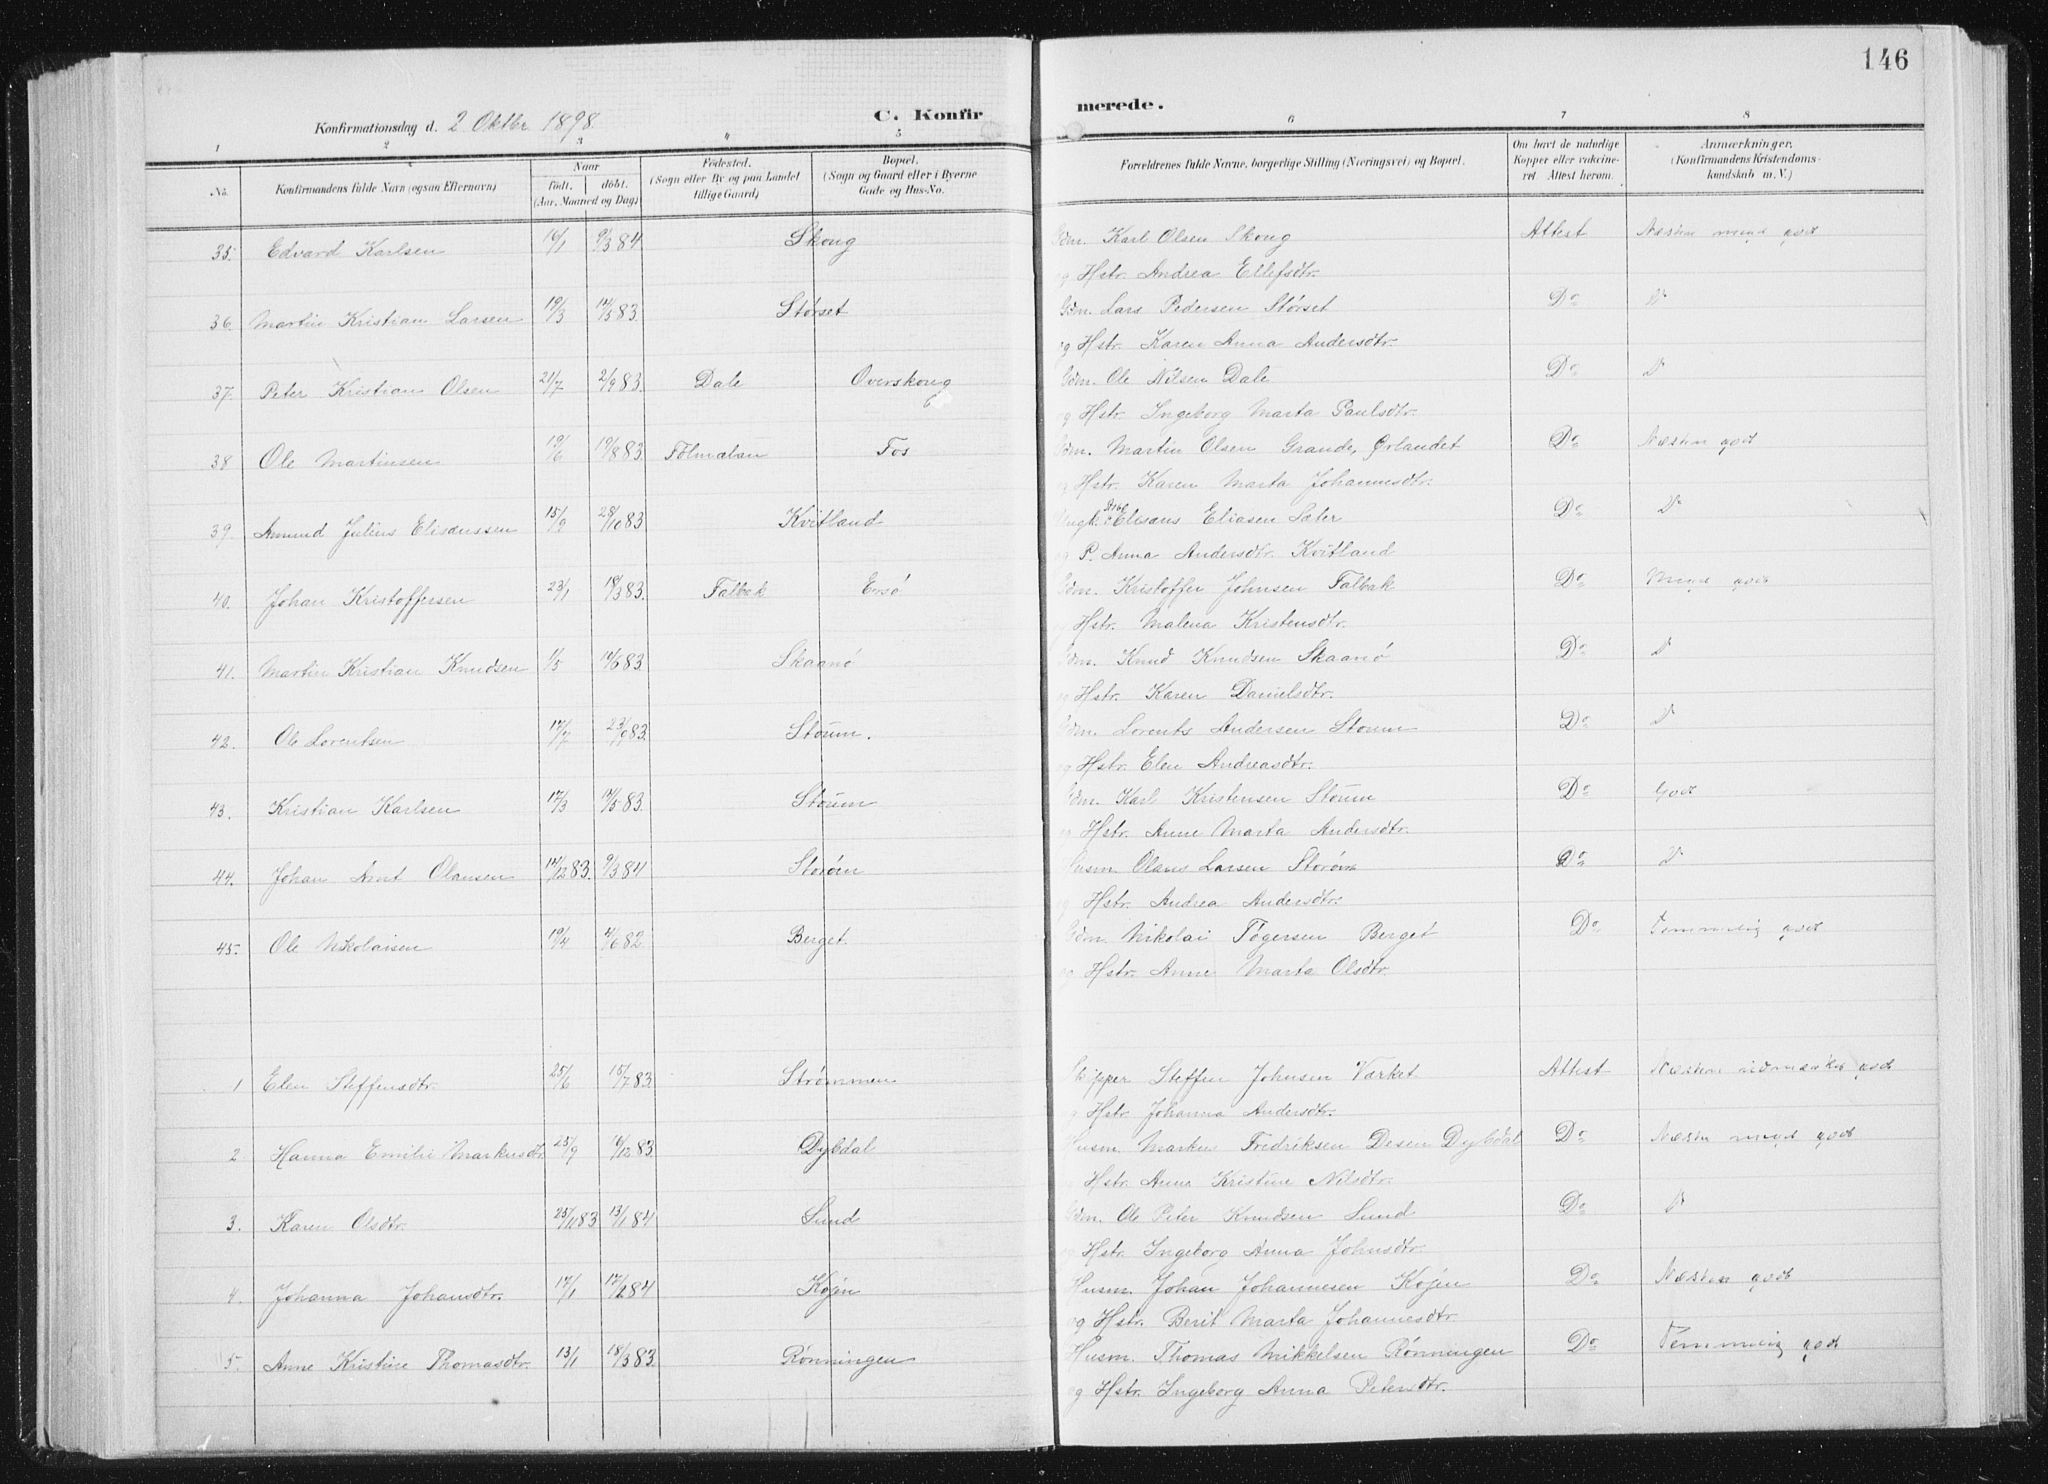 146
C. Konfirmerede.
Konfirmationsdag d. 2 Oktbr. 1898.
1 2 3 4 5 6 7 8
No. Konfirmandens fulde Navn (ogsaa Efternavn) Naar født. døbt. (Aar, Maaned og Dag) Fødested. (Sogn eller By og paa Landet tillige Gaard) Bopæl. (Sogn og Gaard eller i Byerne Gade og Hus-No. Forældrenes fulde Navne, borgerlige Stilling (Næringsvei) og Bopæl. Om havt de naturlige Kopper eller vaccineret. Attest herom. Anmærkninger. (Konfirmandens Kristendomskundskab m. V.)
35. Edvard Karlsen 16/1 9/3 84 Skoug Gdm. Karl Olsen Skoug Attest Næsten meget godt
og Hstr. Andrea Ellefsdtr.
36. Martin Kristian Larsen 19/3 14/5 83. Størset Gdm. Lars Pedersen Størset Do D
og Hstr. Karen Anna Andersdtr.
37. Peter Kristian Olsen 21/7 2/9 83. Dale Overskoug Gdm. Ole Nilsen Dale Do D
og Hstr. Ingeborg Marta Paulsdtr.
38 Ole Martinsen 19/6 19/8 83. Følmælan Fos Gdm. Martin Olsen Grande, Ørlandet Do Næsten godt
og Hstr. Karen Marta Johannesdtr.
39. Amund Julius Elisæussen 15/9 28/10 83 Kvitland Ungk. Elisæus Eliasen Sæter Do D
og P. Anna Andersdtr. Kvitland
40. Johan Kristoffersen 23/1 18/3 83. Falbak Ersø Gdm. Kristoffer Johnsen Falbak Do Meget godt
og Hstr. Malena Kristensdtr.
41. Martin Kristian Knudsen 1/5 14/6 83 Skaanø Gdm. Knud Knudsen Skaanø Do D
og Hstr. Karen Danielsdtr.
42. Ole Lorentsen 17/7 23/9 83. Støum. Gdm. Lorents Andersen Støum Do D
og Hstr. Elen Andreasdtr.
43. Kristian Karlsen 17/3 14/5 83. Støum Gdm. Karl Kristensen Støum Do Godt
og Hstr. Anne Marta Andersdtr.
44. Johan Arnt Olausen 14/12 83. 9/3 84 Storøen Husm. Olaus Larsen Storøen Do D
og Hstr. Andrea Andersdtr.
45. Ole Nikolaisen 19/4 4/6 82 Berget. Gdm. Nikolai Tøgersen Berget Do. Temmelig godt
og Hstr. Anne Marta Olsdtr.
1 Elen Steffensdtr. 25/6 15/7 83. Strømmen Skipper Steffen Johnsen Værket Attest Næsten udmærket godt
og Hstr. Johanna Andersdtr.
2. Hanna Emilie Markusdtr. 25/9 16/12 83. Dybdal Husm. Markus Fridriksen Desen Dybdal Do Næsten meget godt
Hstr. Anne Kristine Nilsdtr.
3. Karen Olsdtr. 25/11 83 13/1 84 Sund Gdm. Ole Peter Knudsen Sund Do D
og Hstr. Ingeborg Anna Johnsdtr.
4. Johanna Johansdtr. 17/1 17/2 84 Kojen Husm. Johan Johannesen Kojen Do Næsten godt
og Hstr. Berit Marta Johannesdtr.
5. Anne Kristine Thomasdtr. 13/1 18/3 83. Rønningen Husm. Thomas Mikkelsen Rønningen Do Temmelig godt
og Hstr. Ingeborg Anna Petersdtr.